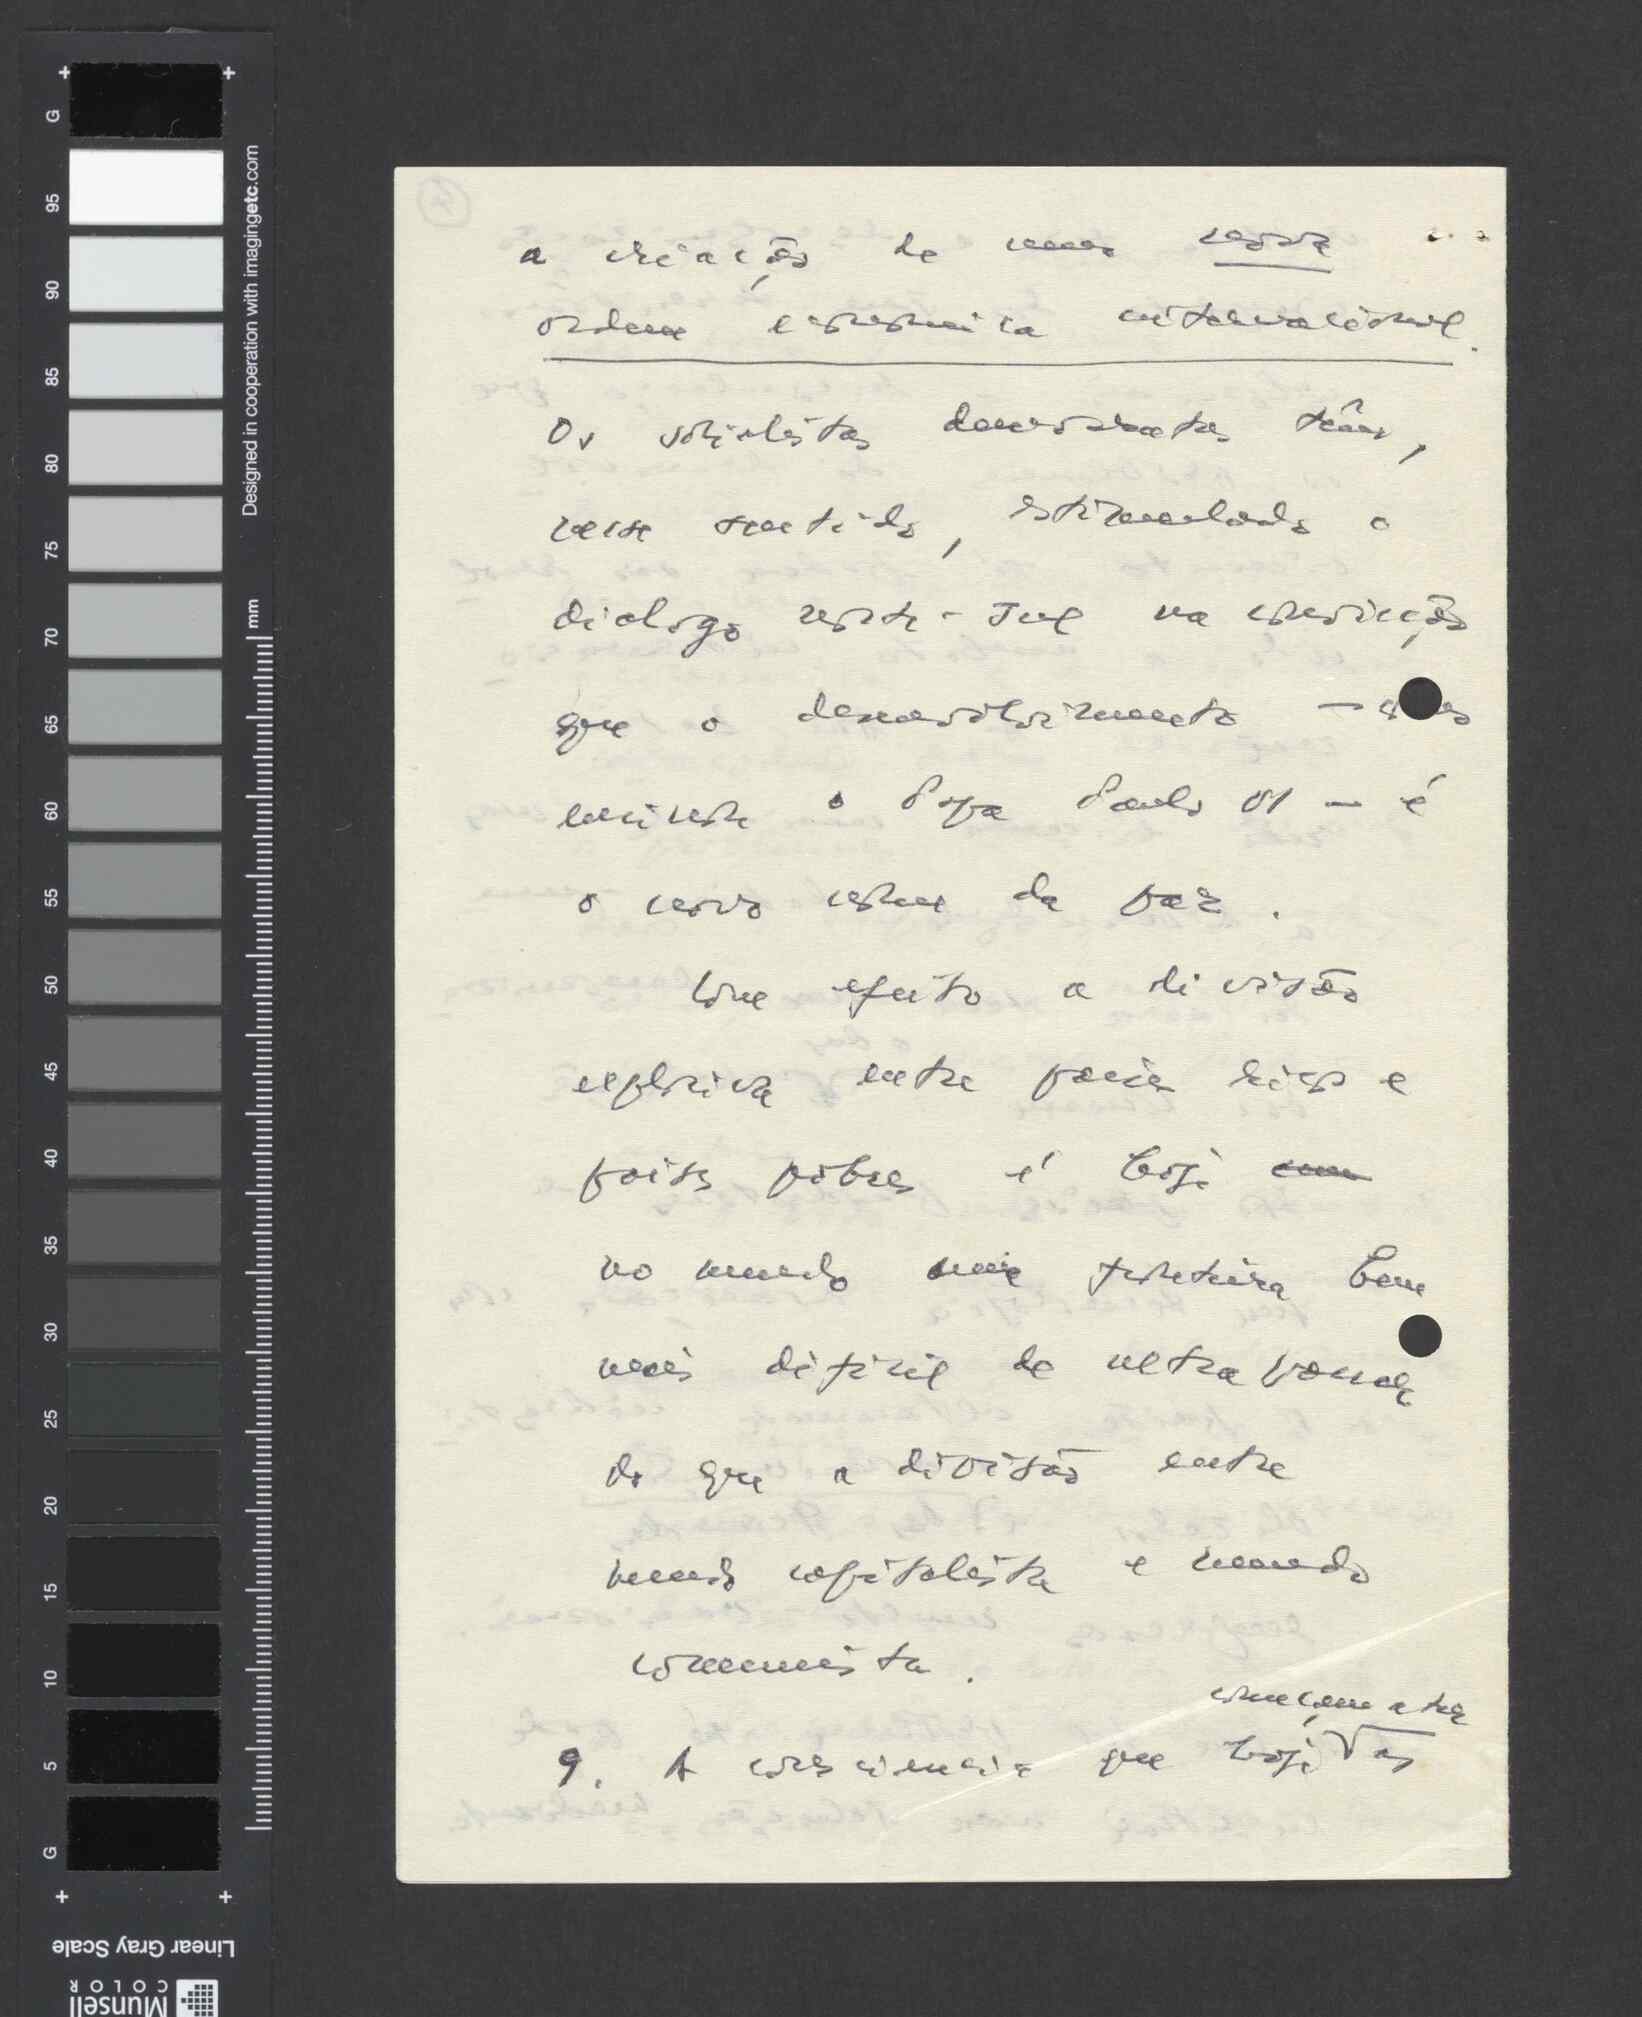 a criação de uma nova
ordem económica internacional.
Os socialistas democratas têm,
nesse sentido, estimulado o
dialogo norte-Sul na convicção
que o desenvolvimento —
ensinou o Papa Paulo VI — é
o novo nome da paz.
Com efeito a divisão
explosiva entre países ricos e
países pobres é hoje
no mundo uma fronteira bem
mais difícil de ultrapassar
do que a divisão entre
mundo capitalista e mundo
comunista.
começam a ter
9. A consciencia que hoje as
G
95
90
85
80
75
70
65
60
55
50
45
40
35
30
25
20
15
10
5
G
Designed in cooperation with imagingetc.com
mm
Linear Gray Scale
Munsell
COLOR